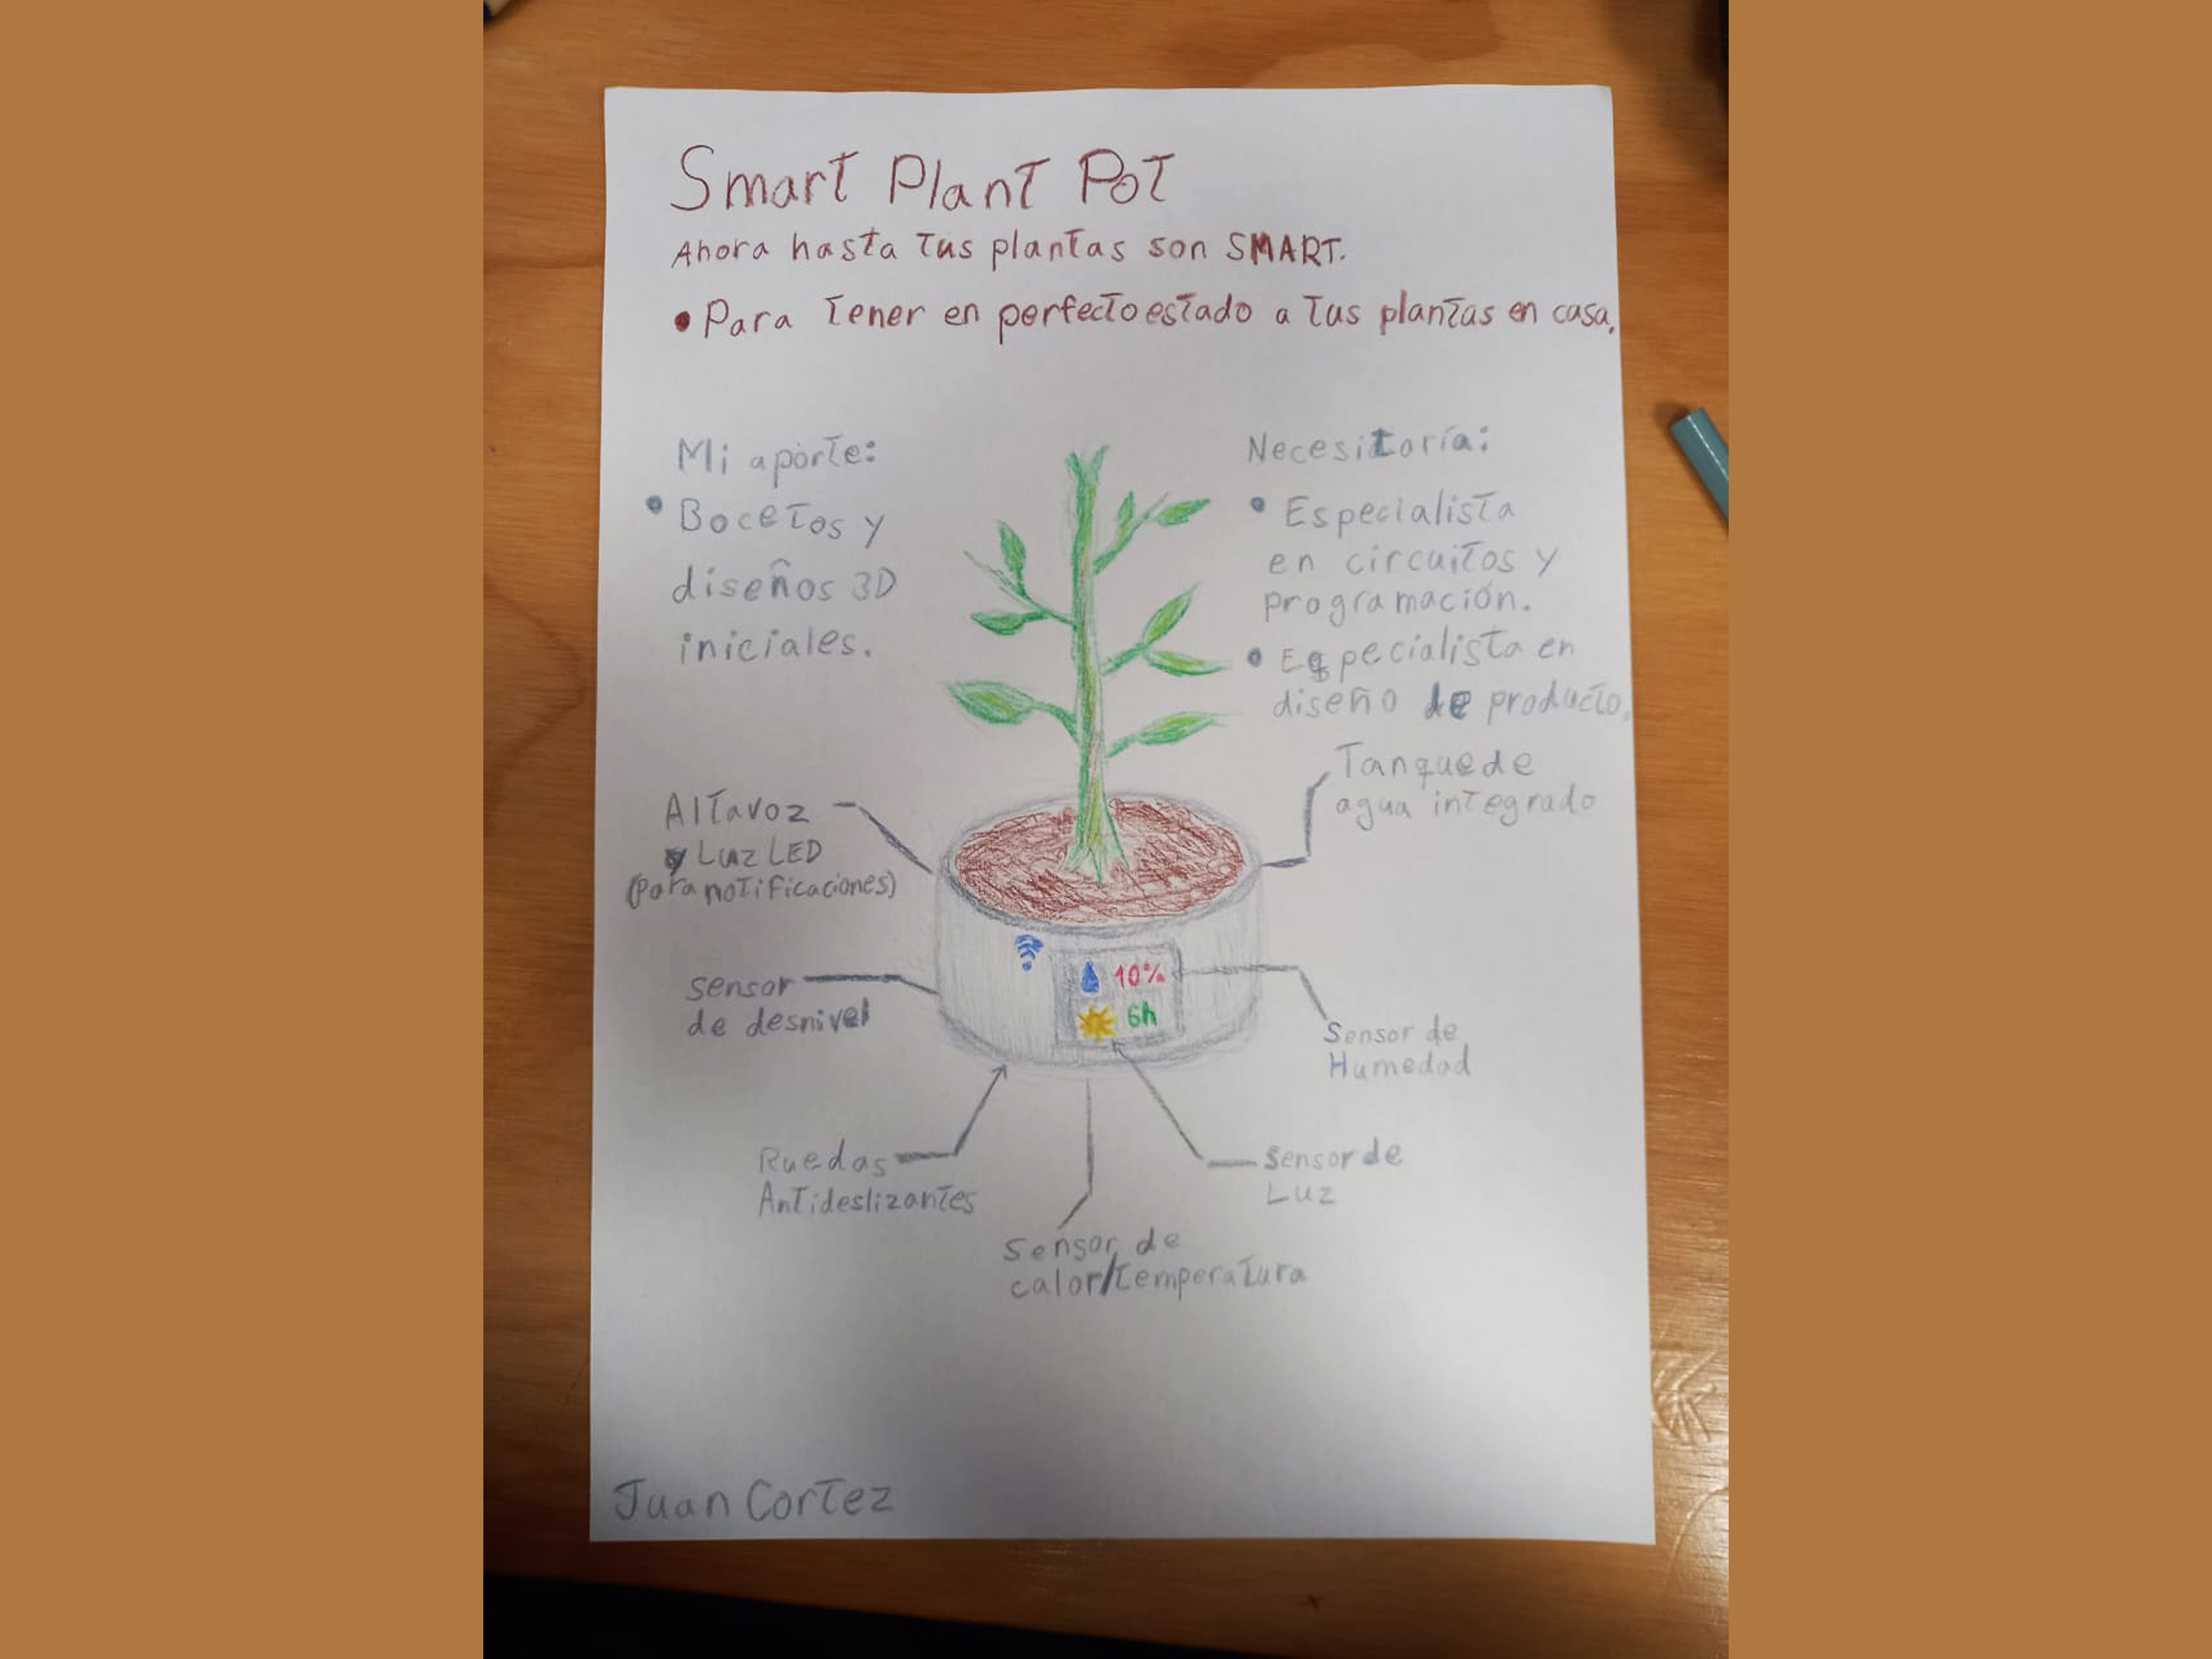 Smart Plant Pot
Ahora hasta tus plantas son SMART.
• Para tener en perfecto estado a tus plantas en casa.
Mi aporte:
• Bocetos y
diseños 3D
iniciales.
Necesitaría:
• Especialista
en circuitos y
programación.
• Especialista en
diseño de producto.
Altavoz
y Luz LED
(para notificaciones)
Tanque de
agua integrado
sensor
de desnivel
10%
6h
Sensor de
Humedad
Ruedas
Antideslizantes
Sensor de
Luz
Sensor de
calor/temperatura
Juan Cortez